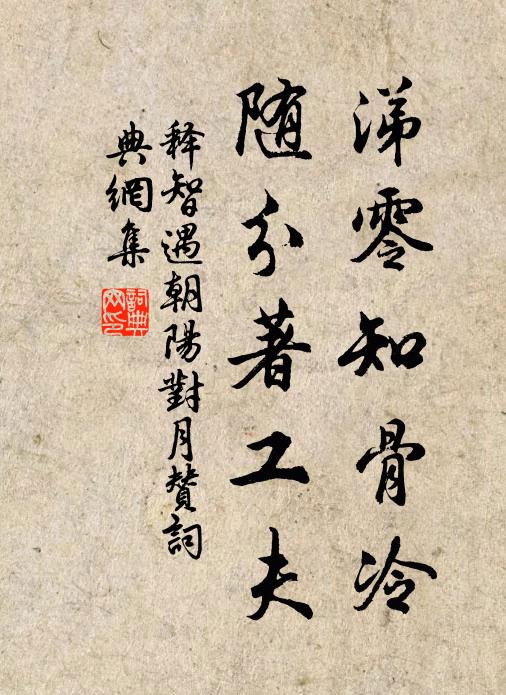 涕零知骨冷
随分著工夫
释智遇朝陽對月贊詞
典網集
詞典网印